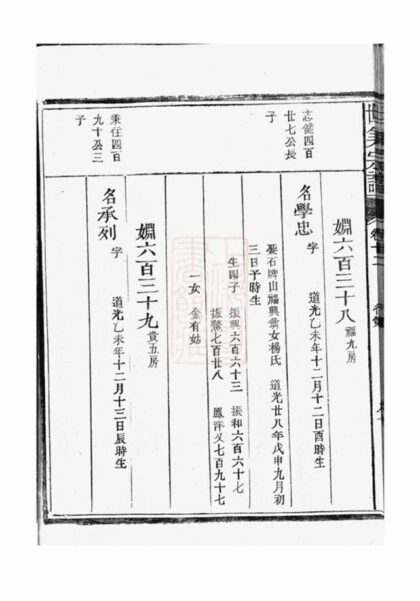 卷十二
志健四百
廿七公長
子
婣六百三十八 福九房
名學忠 字 道光乙未年十二月十二日酉時生
娶石牌山福興翁女楊氏 道光廿八年戊申九月初
三日子時生
生四子 振興六百六十三 振和六百六十七
振鰲七百廿八 鳳洋又七百九十七
一女 金有姑
秉任四百
九十公三
子
婣六百三十九 貴五房
名承列 字 道光乙未年十二月十三日辰時生